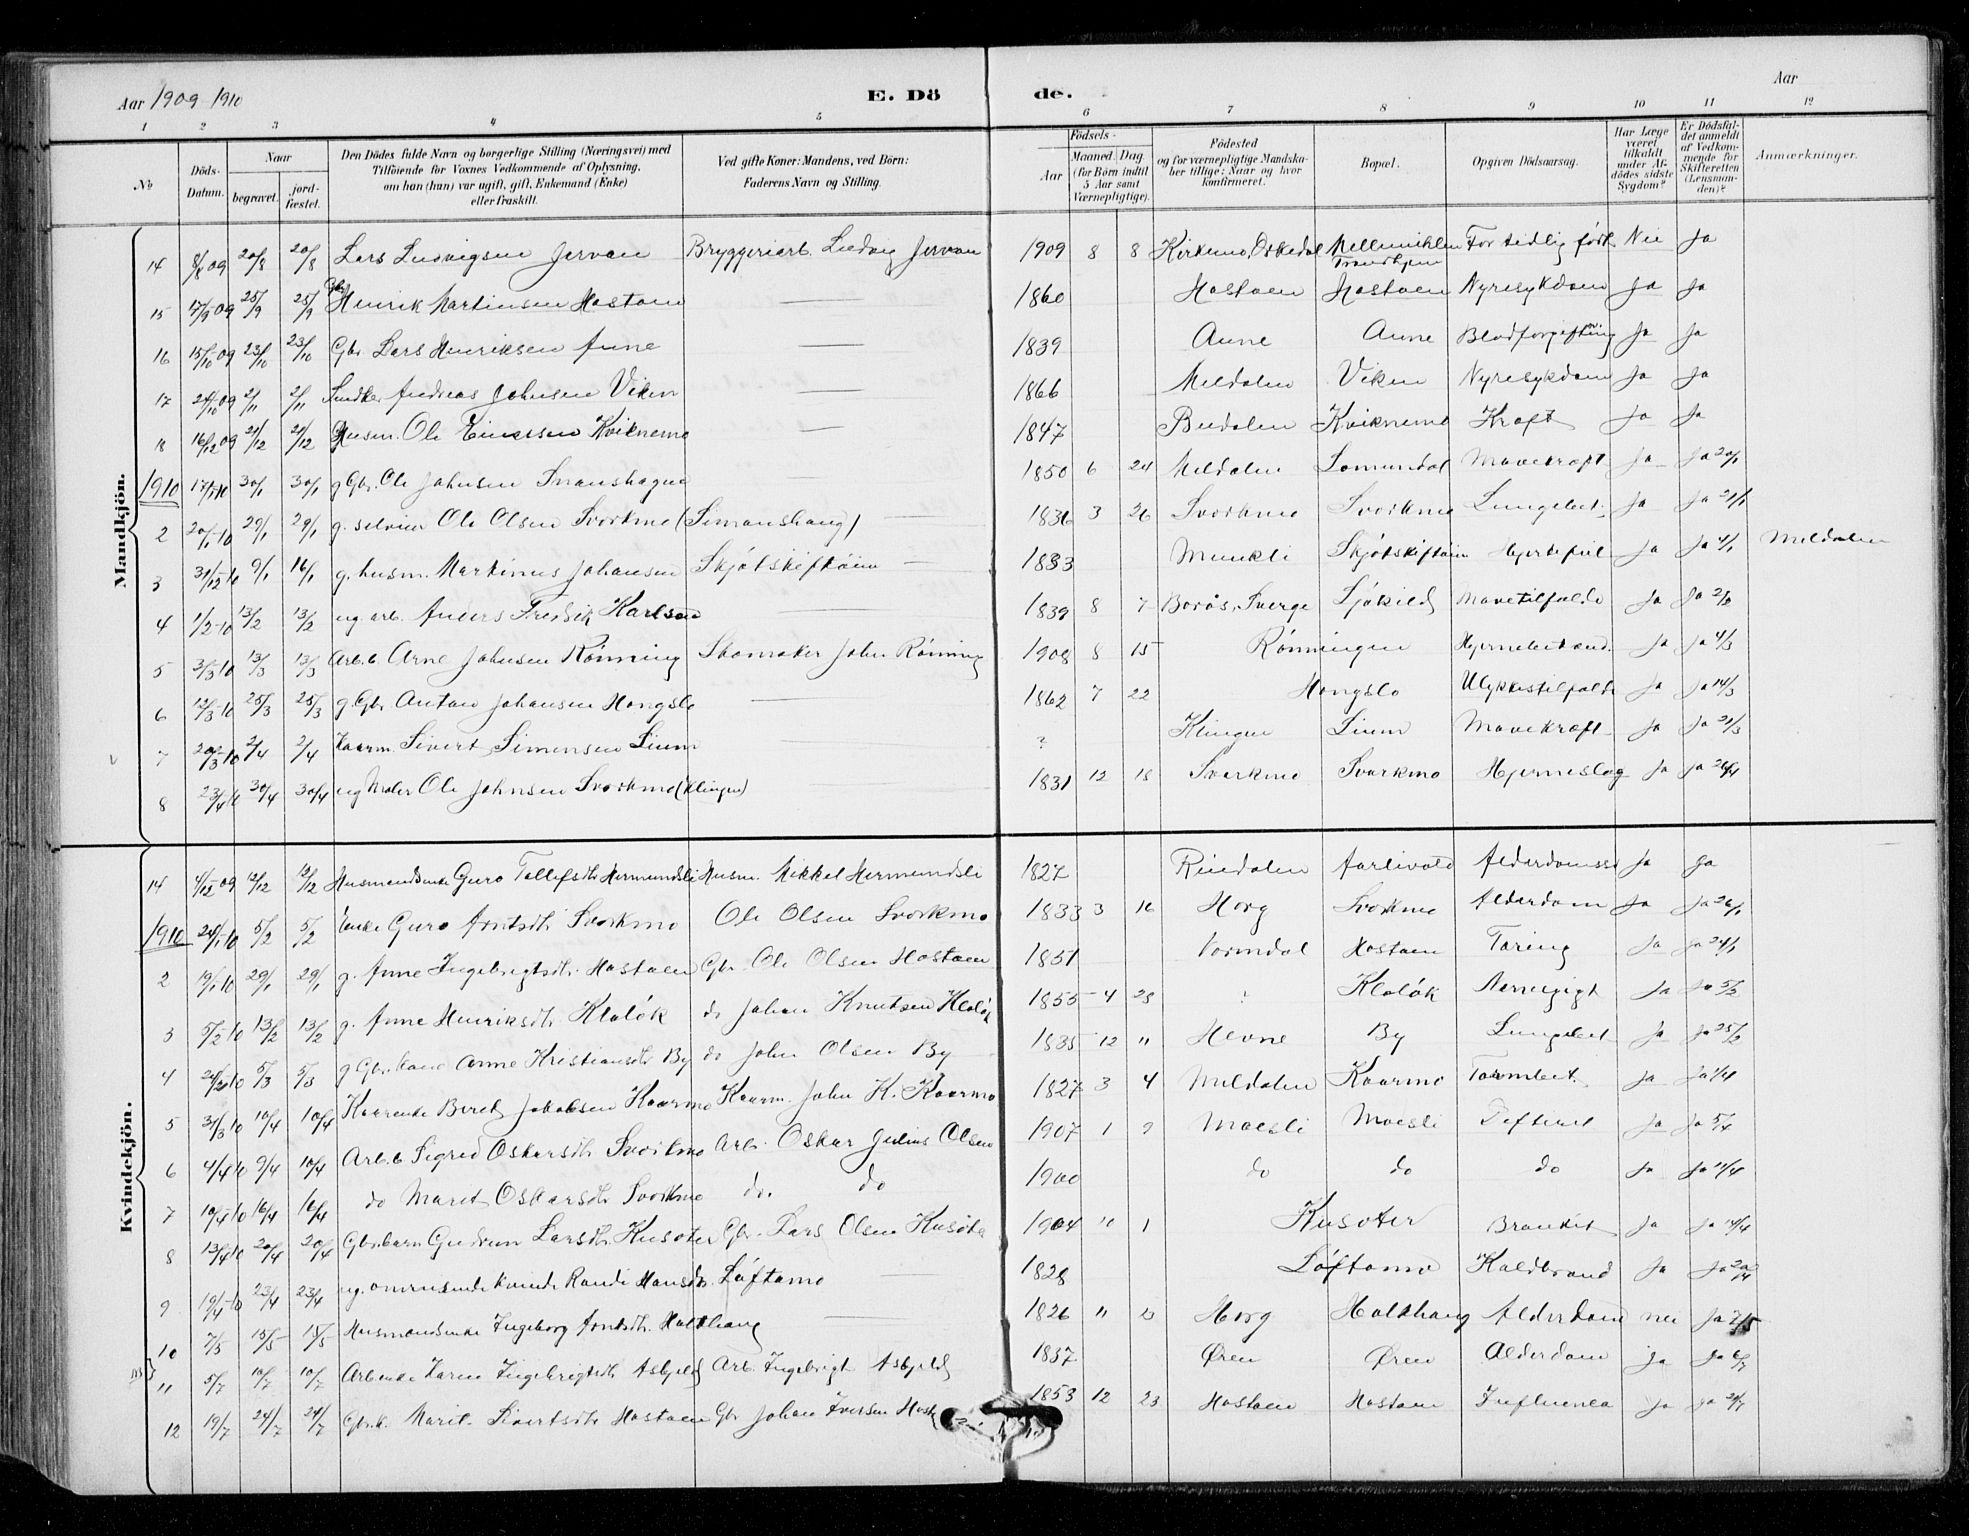 Aar 1909-1910
E. Dö
de.
Aar
1 2 3 4 5 6 7 8 9 10 11 12
№
Döds-Datum.
Naar
begravet.
jord-fæstet.
Den Dödes fulde Navn og borgerlige Stilling (Næringsvei) med
Tilföiende for Voxnes Vedkommende af Oplysning,
om han (hun) var ugift, gift, Enkemand (Enke)
eller fraskilt.
Ved gifte Koner: Mandens, ved Börn:
Faderens Navn og Stilling.
Födsels-
Aar
Maaned. Dag.
(for Börn indtil
5 Aar samt
Værnepligtige).
Födested
og for værnepligtige Mandska-
ber tillige: Naar og hvor
konfirmeret.
Bopæl.
Opgiven Dödsaarsag.
Har Læge
været
tilkaldt
under Af-
dödes sidste
Sygdom?
Er Dödsfal-
det anmeldt
af Vedkom-
mende for
Skifteretten
(Lensman-
den)?
Anmærkninger.
Mandkjön.
14 8/8 09 20/8 20/8 Lars Ludvigsen Jervan Bryggeriarb. Ludvig Jervan 1909 8 8 Kirkemo, Orkedal Mellemiklen Trondhjem For tidlig født Nei Ja
15 17/9 09 25/9 25/9 Gbr Henrik Martinsen Hostoen 1860 Hostoen Hostoen Nyresykdom Ja Ja
16 15/10 09 23/10 23/10 Gbr Lars Henriksen Aune 1839 Aune Aune Blodforgiftning Ja Ja
17 24/10 09 2/11 2/11 Andreas Johnsen Viken 1866 Meldalen Viken Nyresykdom Ja Ja
18 16/12 09 21/12 21/12 Husm. Ole Einarsen Kviknemo 1847 Budalen Kviknemo Kræft Ja Ja
1910 17/1-10 30/1 30/1 g Gbr. Ole Johnsen 1850 6 24 Meldalen Lomundal Mavekræft Ja Ja 20/1
2 20/1-10 29/1 29/1 g. selveier Ole Olsen Svorkmo (Simonshaug) 1836 3 26 Svorkmo Svorkmo Lungebet. Ja Ja 21/1
3 31/12-10 9/1 16/1 g. husm. Martinus Johansen Skjøtskiftøien 1833 Munkli Skjøtskiftøien Hjertefeil Ja Ja 4/1 Meldalen
4 1/2-10 13/2 13/2 ug. arb. Anders Fredrik Karlsen 1839 8 7 Borås, Sverge Sjøkild Mavetilfælde Ja Ja 2/2
5 3/3 10 13/3 13/3 Arb.b Arne Johnsen Rønning Skomaker John Rønning 1908 8 15 Rønningen Hjernebetænd. Ja Ja 4/3
6 12/3-10 25/3 25/3 g. Gbr. Anton Johansen Hongslo 1862 7 22 Hongslo Ulykkestilfælde Ja Ja 14/3
7 20/3-10 2/4 2/4 Kaarm. Sivert Simonsen Lium ? Klingen Lium Mavekræft Ja Ja 21/3
8 23/4 10 30/4 30/4 ug Maler Ole Johnsen Svorkmo (Klingen) 1831 12 18 Svorkmo Svorkmo Hjerneslag Ja Ja 26/4
Kvindekjön.
14 4/12 09 12/12 12/12 Husmandsenke Guro Tollefsdtr Hermundsli Husm. Mikkel Hermundsli 1827 Rindalen Aarlivold Alderdomssv Ja Ja
1910 24/1-10 5/2 5/2 Enke Guro Arntsdtr Svorkmo Ole Olsen Svorkmo 1833 3 16 Horg Svorkmo Alderdom Ja Ja 26/1
2 19/1-10 29/1 29/1 g. Anne Ingebrigtsdtr. Hostoen Gbr. Ole Olsen Hostoen 1851 Vormdal Hostoen Tæring Ja Ja 24/1
3 5/2 10 13/2 13/2 g. Anne Henriksdtr Kleløk do Johan Knutsen Kleløk 1855 4 28 ? Kleløk Nervegigt Ja Ja 5/2
4 24/2 10 5/3 5/3 g Gbr.kone Anne Kristiansdtr By do John Olsen By 1835 12 " Hevne By Lungebet Ja Ja 25/2
5 31/3 10 10/4 10/4 Kaarenke Beret Jakobsen Kaarmo Kaarm. John H. Kaarmo 1827 3 4 Meldalen Kaarmo Tarmbet. Ja Ja 1/4
6 4/4 10 9/4 10/4 Arb.b Sigrid Oskarsdtr Svorkmo Arb. Oskar Julius Olsen 1907 1 9 Moesli Moesli Difterit Ja Ja 5/4
7 10/4-10 16/4 16/4 do Marit Oskarsdtr Svorkmo do. do 1900 do do do Ja Ja 11/4
8 13/4 10 20/4 20/4 Gbr.barn Gudrun Larsdtr. Kusøter Gbr. Lars Olsen Kusøter 1904 10 1 Kusøter Bronkit Ja Ja 14/4
9 19/4-10 23/4 23/4 ug. omreisende kvinde Randi Hansdtr. Løftamo 1828 Løftamo Koldbrand Ja Ja 20/4
10 7/5 15/5 15/5 Husmandsenke Ingeborg Arntsdtr. Holthaug 1826 " 13 Horg Holthaug Alderdom nei Ja 7/5
11 5/7 10/7 10/7 Arb.enke Karen Ingebrigtsdtr Asbjeld Arb. Ingebrigt Asbjeld 1837 Øren Øren Alderdom Ja Ja 6/7
12 19/7 24/7 24/7 Gbr.k. Marit Sivertsdtr Hostoen Gbr Johan Iversen 1853 12 23 Hostoen Hostoen Influensa Ja Ja 21/7